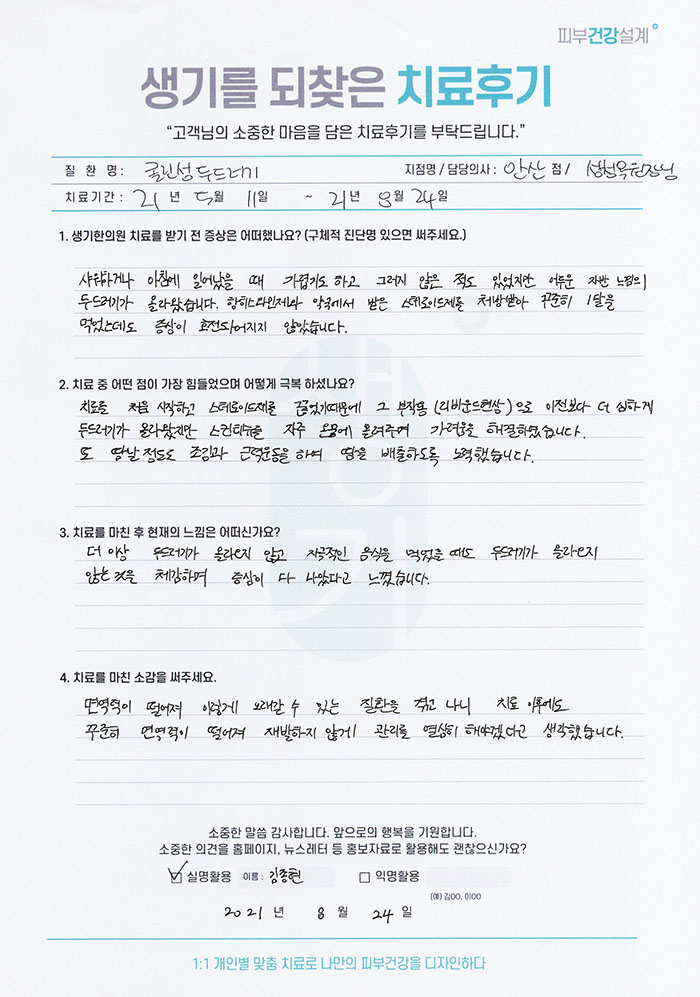 피부건강설계
생기를 되찾은 치료후기
“고객님의 소중한 마음을 담은 치료후기를 부탁드립니다.”
질 환 명 : 콜린성 두드러기 지점명 / 담당의사 : 안산 점 / 원장님
치료기간 : 21 년 5 월 11 일 ~ 21 년 8 월 24 일
1. 생기한의원 치료를 받기 전 증상은 어떠했나요? (구체적 진단명 있으면 써주세요.)
샤워하거나 아침에 일어났을 때 가렵기도 하고 그러지 않은 적도 있었지만 어두운 자반 느낌의
두드러기가 올라왔습니다. 항히스타민제와 약국에서 받은 스테로이드제를 처방받아 꾸준히 1달을
먹었는데도 증상이 호전되어지지 않았습니다.
2. 치료 중 어떤 점이 가장 힘들었으며 어떻게 극복 하셨나요?
치료를 처음 시작하고 스테로이드제를 끊었기때문에 그 부작용 (리바운드현상)으로 이전보다 더 심하게
두드러기가 올라왔지만 자주 환부에 올려주며 가려움을 해결하였습니다.
또 땀날 정도로 조깅과 근력운동을 하며 땀을 배출하도록 노력했습니다.
3. 치료를 마친 후 현재의 느낌은 어떠신가요?
더 이상 두드러기가 올라오지 않고 자극적인 음식을 먹었을 때도 두드러기가 올라오지
않는 것을 체감하며 증상이 다 나았다고 느꼈습니다.
4. 치료를 마친 소감을 써주세요.
면역력이 떨어져 이렇게 오래갈 수 있는 질환을 겪고 나니 치료 이후에도
꾸준히 면역력이 떨어져 재발하지 않게 관리를 열심히 해야겠다고 생각했습니다.
소중한 말씀 감사합니다. 앞으로의 행복을 기원합니다.
소중한 의견을 홈페이지, 뉴스레터 등 홍보자료로 활용해도 괜찮으신가요?
실명활용 이름 : 김종현 익명활용
(예) 김OO, 이OO
2021 년 8 월 24 일
1:1 개인별 맞춤 치료로 나만의 피부건강을 디자인하다